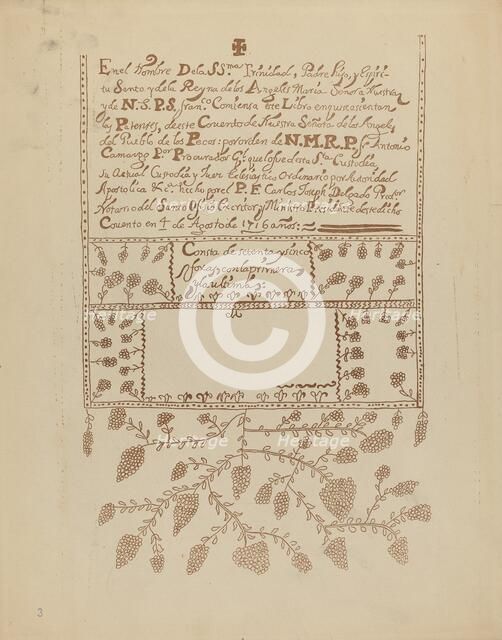 En el Nombre De la SS.ma Trinidad, Padre Hijo, y Espiri-
tu Santo y de la Reyna de los Angeles Maria Señora Nuestra
y de N. S. P. S. Fran.co Comiensa este Libro en que se asientan
las Patentes, de este Convento de Nuestra Señora de los Angeles
del Pueblo de los Pecos: por orden de N. M. R. P. Fr. Antonio
Camargo Por Procurador G.l que lo fue de esta S.ta Custodia
Su Actual Custodio y Juez Eclesiastico Ordinario por Autoridad
Apostolica &c.a hecho por el P. F. Carlos Joseph Delgado Pred.or
Notario del Santo Ofisio Escritor y Ministro Precidente de este dicho
Convento en 4 de Agosto de 1716 años:
Consta de setenta y sinco
fojas con la primera
y la ultima
heritage
Heritage
Heritage
C
Heritage
Images
3